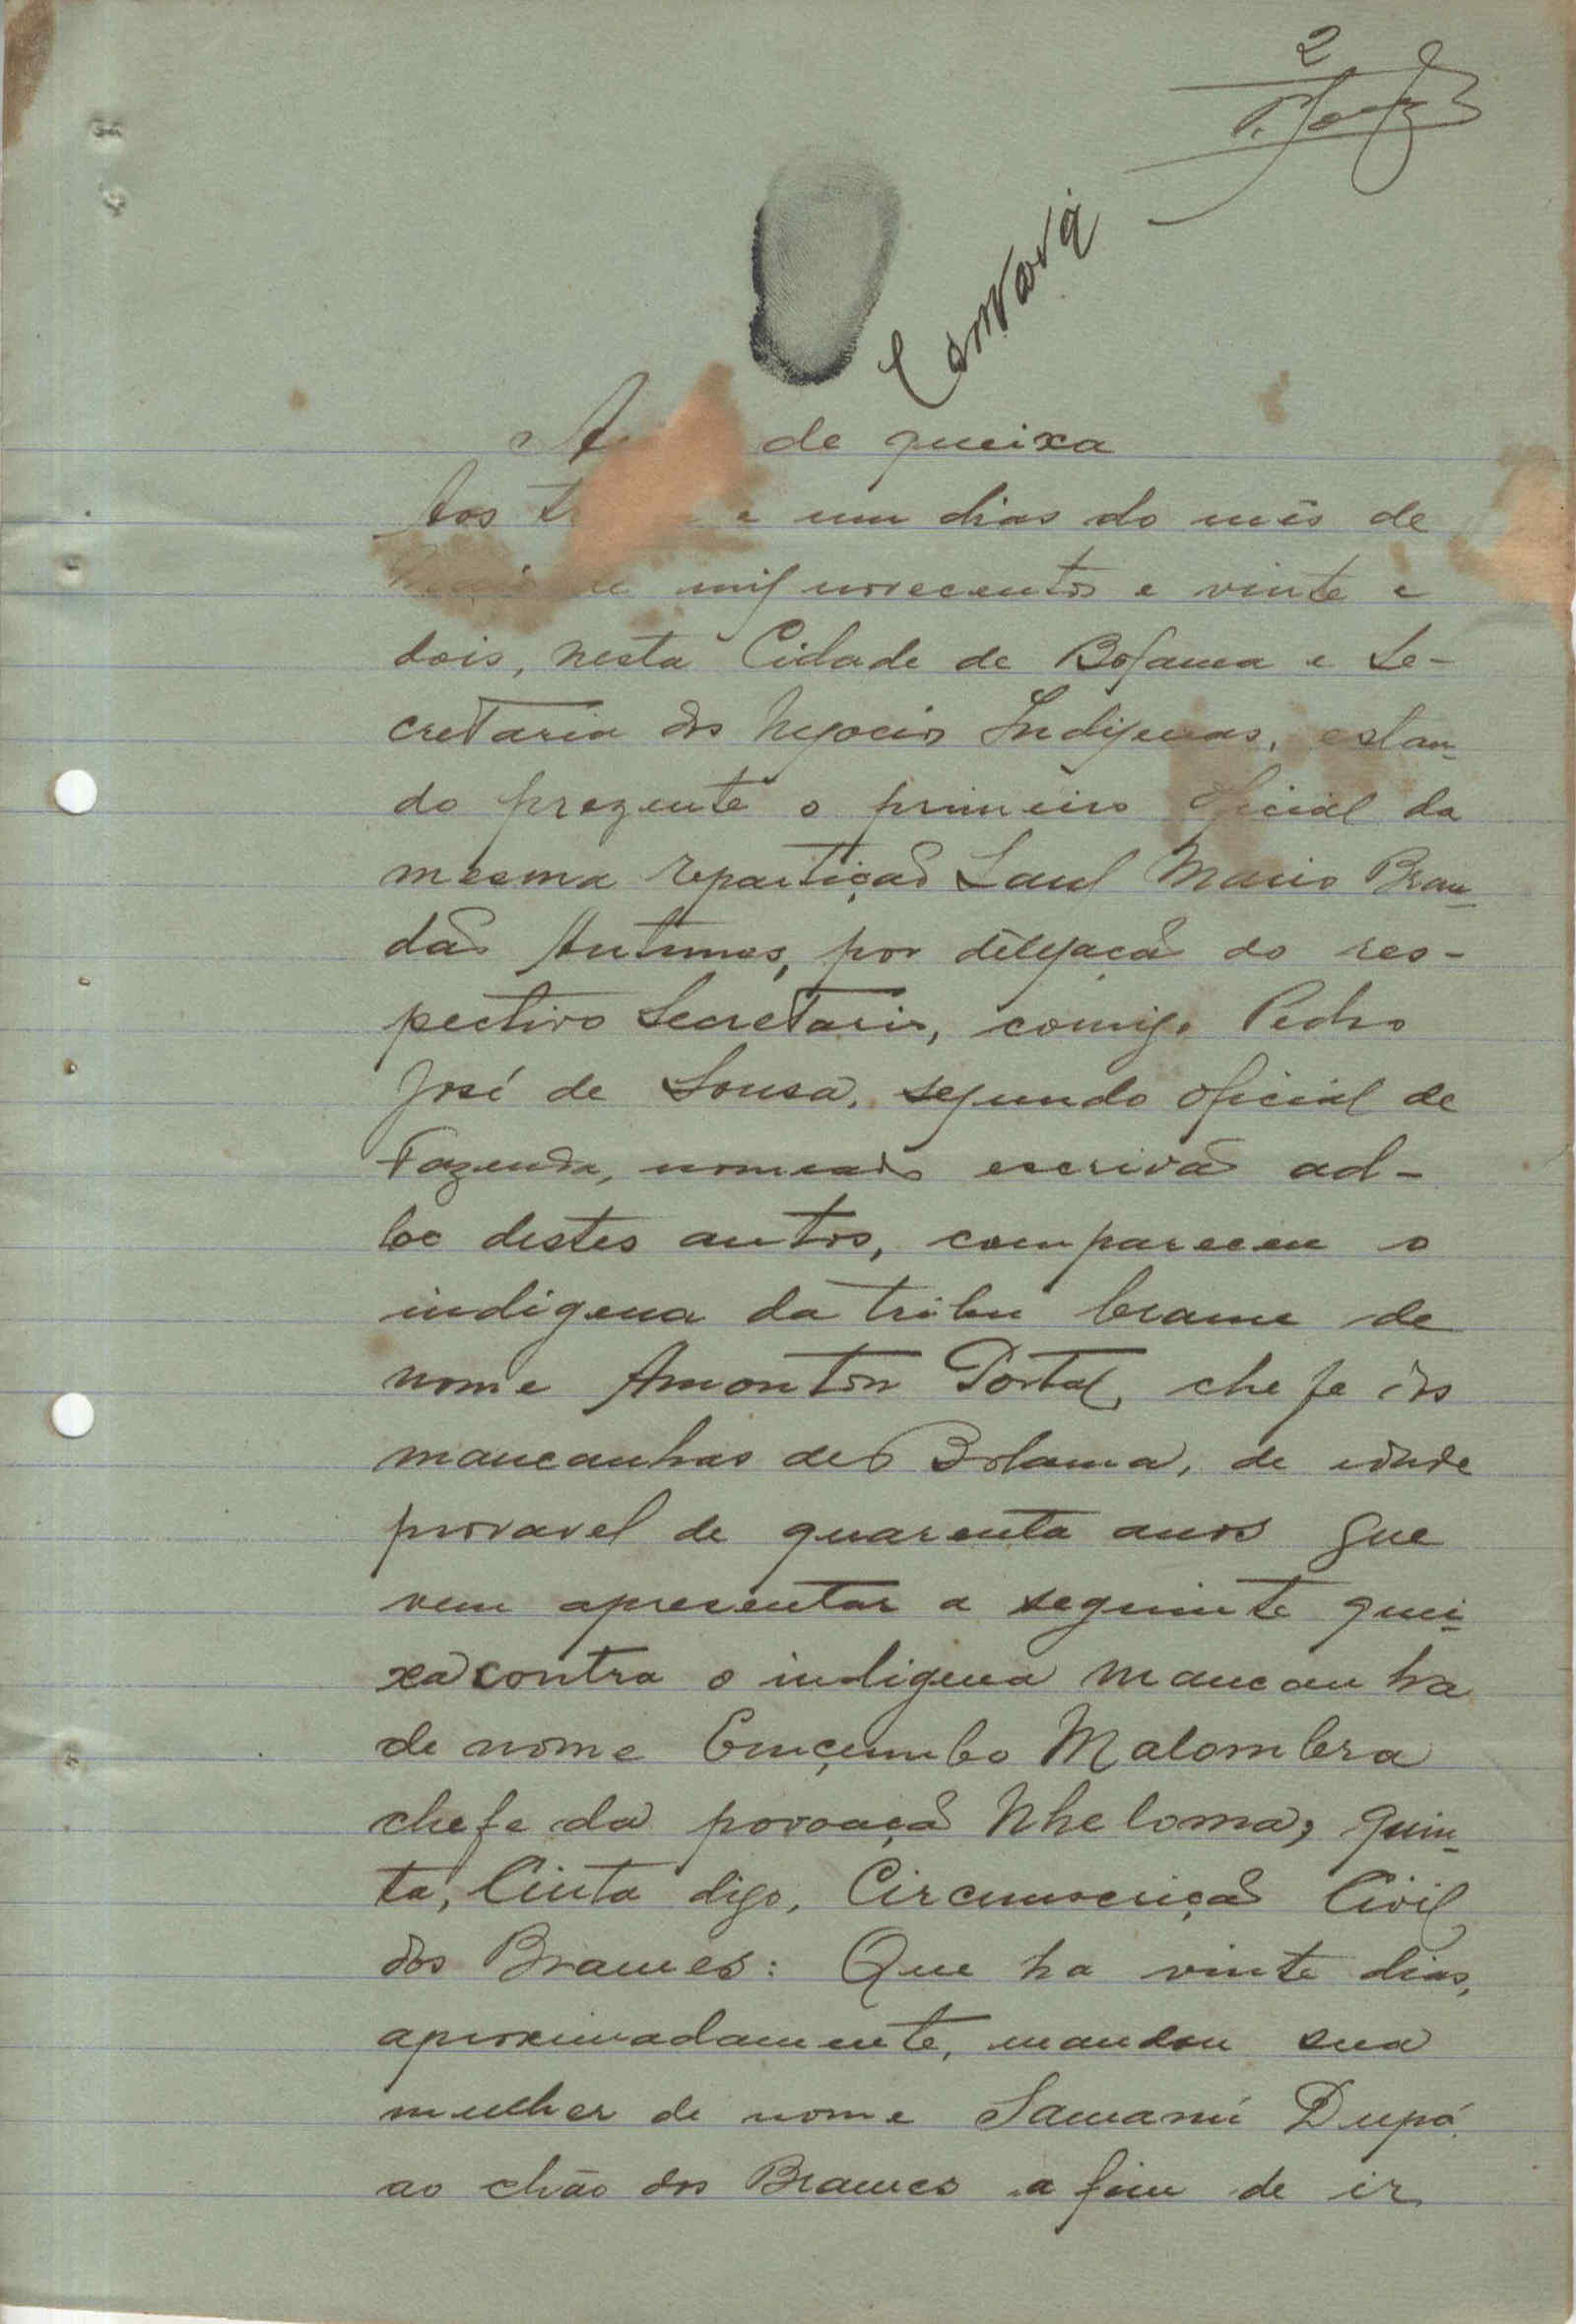 2
de queixa
Aos e um dias do mês de
mil novecentos e vinte e
dois, nesta Cidade de Bolama e Se-
cretaria dos Negocios Indigenas, estan-
do prezente o primeiro oficial da
mesma repartição Saul Mario Bran-
dão Antunes, por delegação do res-
pectivo Secretario, comigo Pedro
José de Sousa, segundo oficial de
Fazenda, nomeado escrivão ad-
hoc destes autos, compareceu o
indigena da tribu brame de
nome Amonton Portal, chefe dos
mancanhas de Bolama, de idade
provavel de quarenta anos que
vem apresentar a seguinte quei-
xa contra o indigena mancanha
de nome Ençumbo Malombra
chefe da povoação Nheloma, quin-
ta, Cinta digo, Circunscrição Civil
dos Brames: Que ha vinte dias,
aproximadamente, mandou sua
mulher de nome Samaní Dupó
ao chão dos Brames a fim de ir